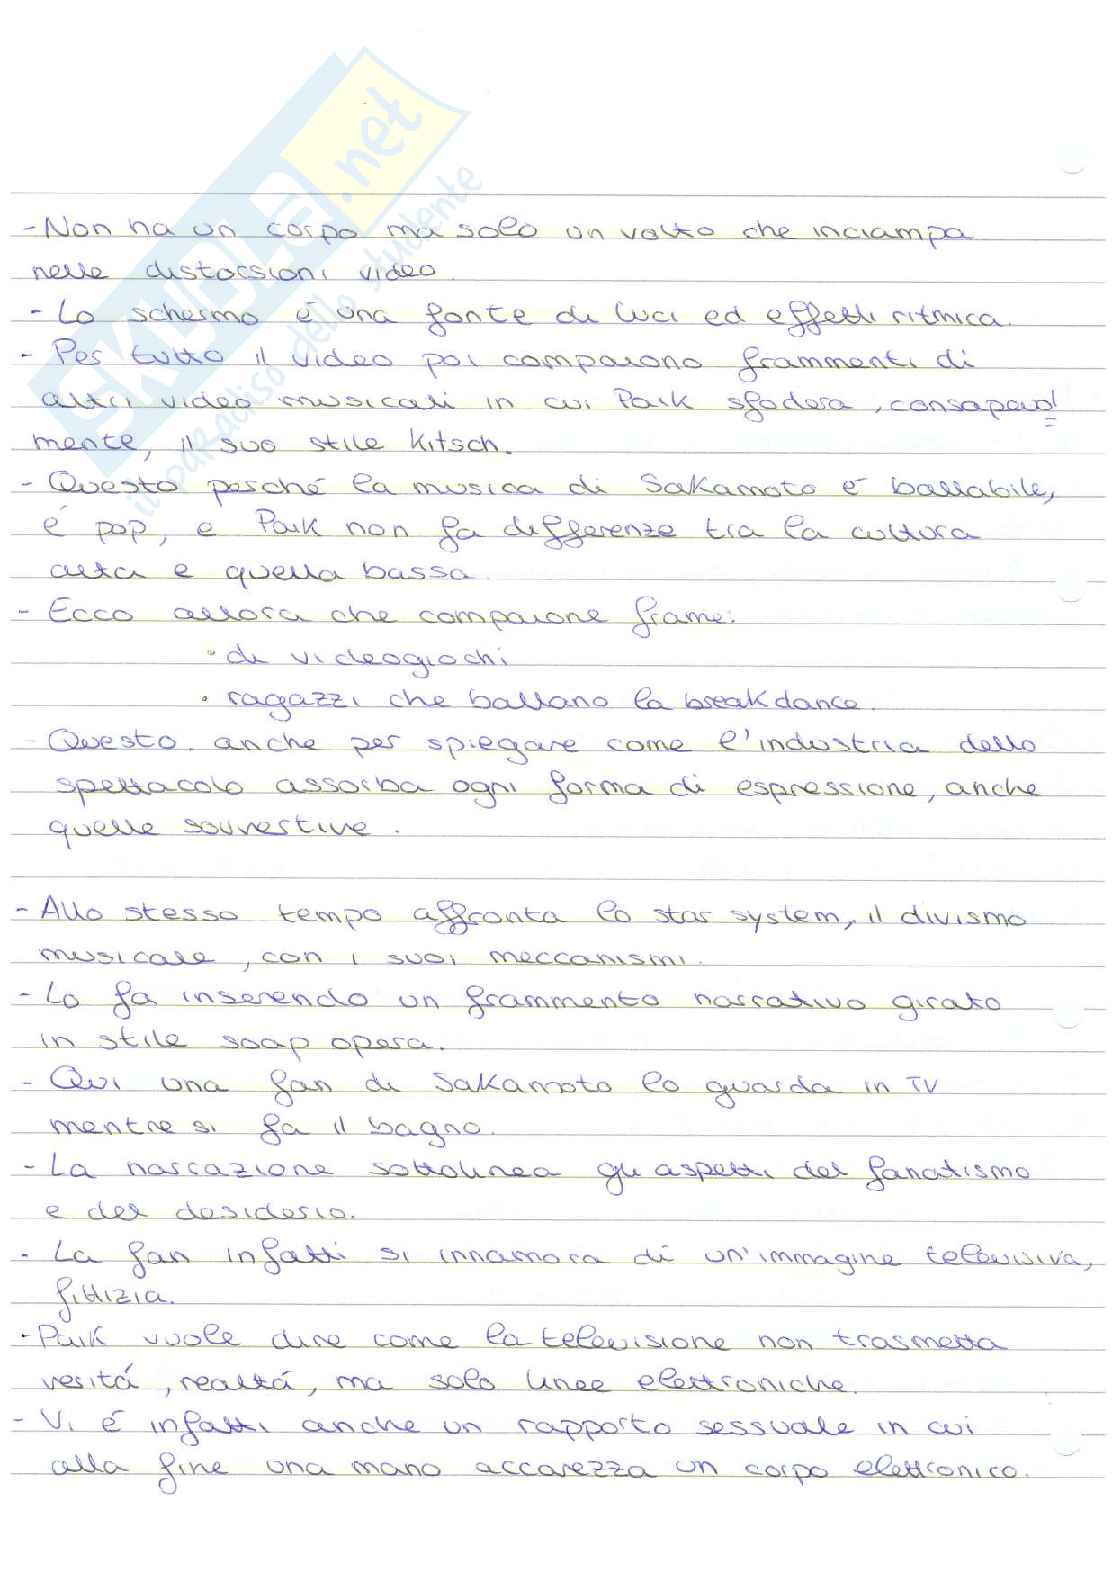 SKUOLA.net
il paradiso dello studente
- Non ha un corpo ma solo un volto che inciampa
nelle distorsioni video.
- Lo schermo é una fonte di luci ed effetti ritmica.
- Per tutto il video poi compaiono frammenti di
altri video musicali in cui Paik sfodera, consapevol
mente, il suo stile Kitsch.
- Questo perché la musica di Sakamoto é ballabile,
é pop, e Paik non fa differenze tra la cultura
alta e quella bassa.
- Ecco allora che compaione frame:
• di videogiochi
• ragazzi che ballano la breakdance.
- Questo anche per spiegare come l'industria dello
spettacolo assorba ogni forma di espressione, anche
quelle sovvertive.
- Allo stesso tempo affronta lo star system, il divismo
musicale, con i suoi meccanismi.
- Lo fa inserendo un frammento narrativo girato
in stile soap opera.
- Qui una fan di Sakamoto lo guarda in TV
mentre si fa il bagno.
- La narrazione sottolinea gli aspetti del fanatismo
e del desiderio.
- La fan infatti si innamora di un'immagine televisiva,
fittizia.
- Paik vuole dire come la televisione non trasmetta
veritá, realtá, ma solo linee elettroniche.
- Vi é infatti anche un rapporto sessuale in cui
alla fine una mano accarezza un corpo elettronico.